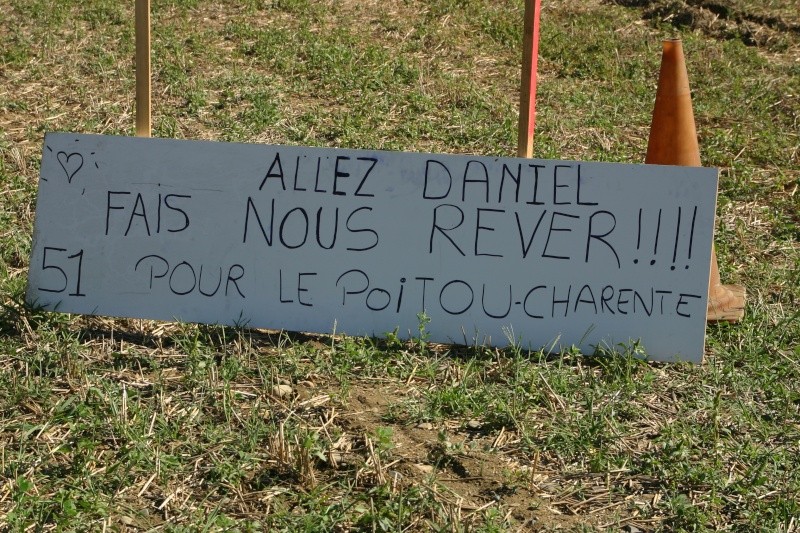 ALLEZ DANIEL
FAIS NOUS REVER!!!!
51 POUR LE POITOU-CHARENTE